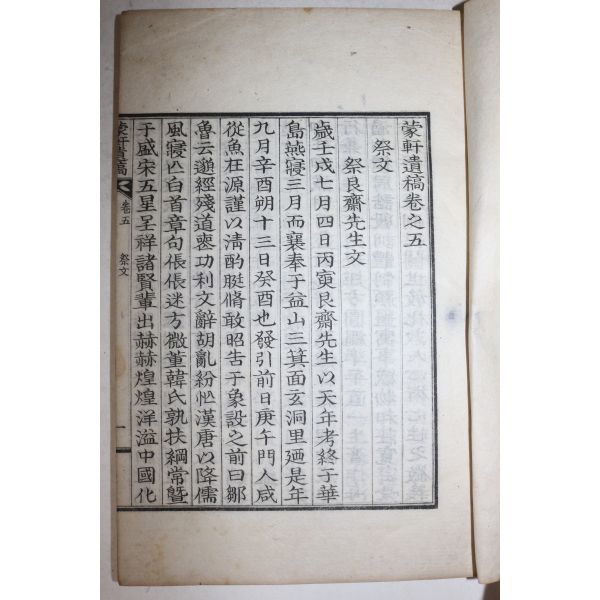 蒙軒遺稿卷之五
祭文
祭艮齋先生文
歲壬戌七月四日丙寅艮齋先生以天年考終于華
島燕寢三月而襄奉于益山三箕面玄洞里廼是年
九月辛酉朔十三日癸酉也發引前日庚午門人咸
從魚在源謹以淸酌脡脩敢昭告于象設之前曰鄒
魯云邈經殘道喪功利文辭胡亂紛忙漢唐以降儒
風寢亾白首章句倀倀迷方微董韓氏孰扶綱常曁
于盛宋五星呈祥諸賢輩出赫赫煌煌洋溢中國化
蒙軒遺稿
卷五
祭文
一